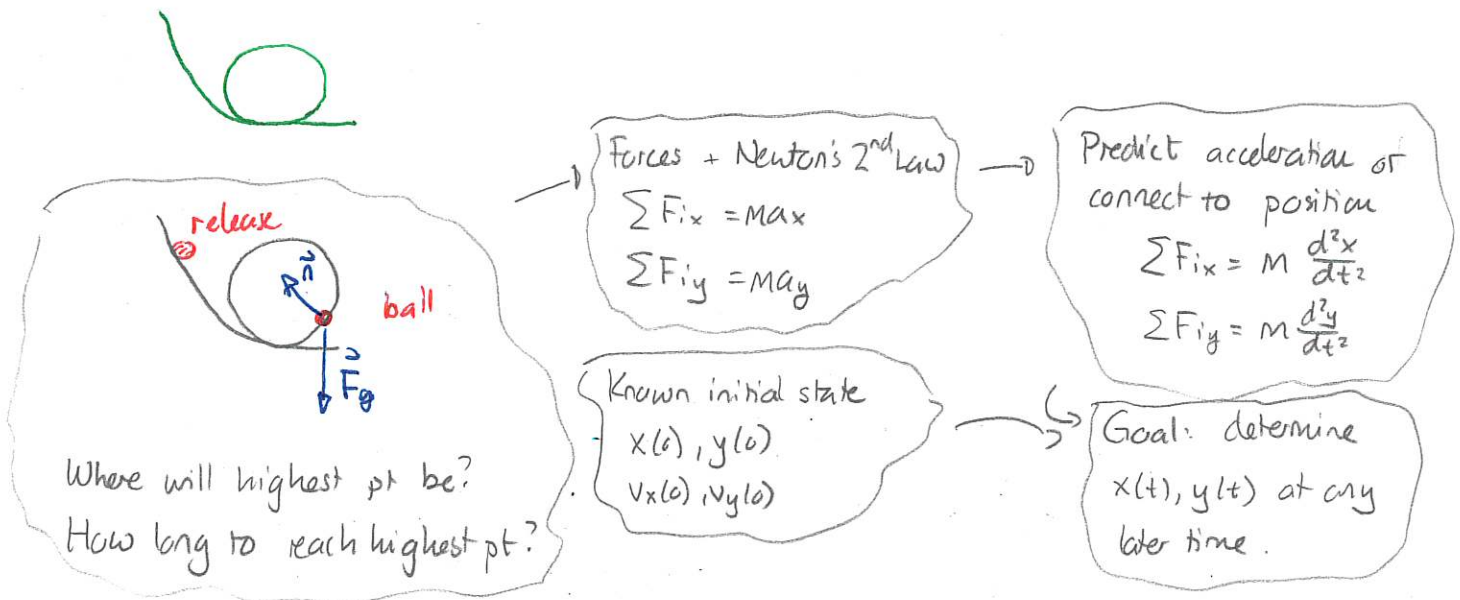 release
n⃗
ball
F⃗g
Where will highest pt be?
How long to reach highest pt?
Forces + Newton's 2nd Law
∑Fix = max
∑Fiy = may
Known initial state
x(0), y(0)
vx(0), vy(0)
Predict acceleration or
connect to position
∑Fix = m d²x/dt²
∑Fiy = m d²y/dt²
Goal: determine
x(t), y(t) at any
later time.